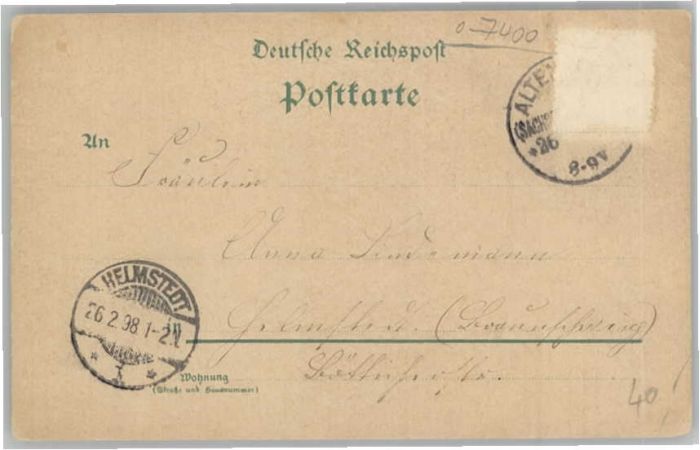 0-7400
Deutsche Reichspost
Postkarte
ALTEN
(SACHS
*26
8-9V
An
Fräulein
Anna Lindemann
HELMSTEDT
26.2.98.1-2N.
* 1 *
Helmstedt. (Braunschweig)
Wohnung
(Straße und Hausnummer)
40,